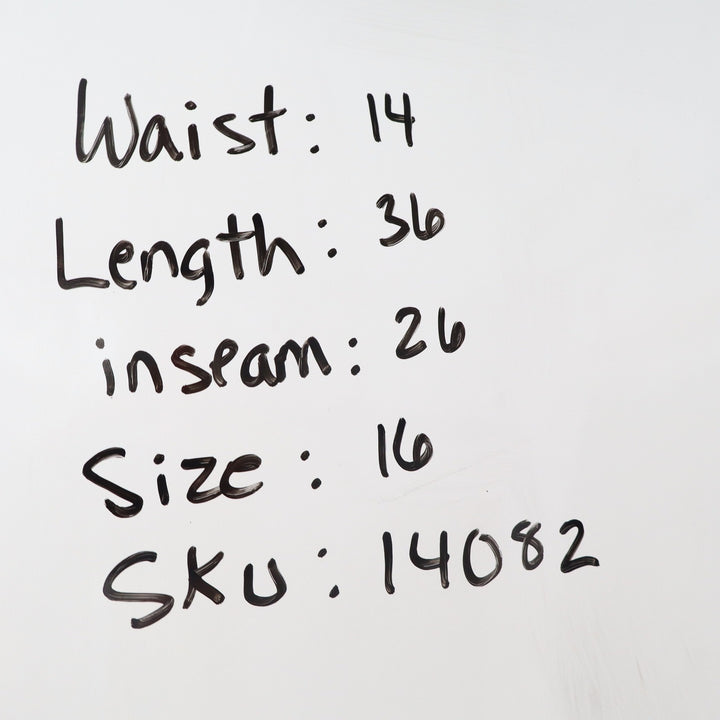 Waist: 14
Length: 36
inseam: 26
Size: 16
SKU: 14082